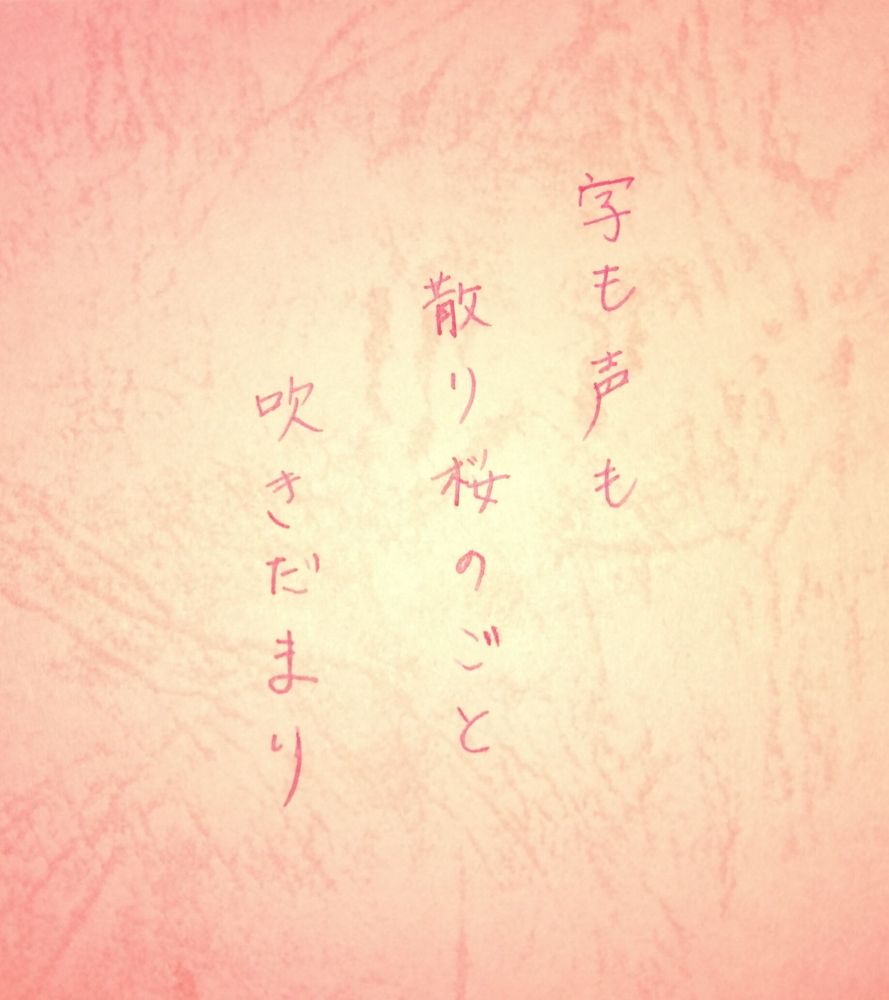 字も声も
散り桜のごと
吹きだまり